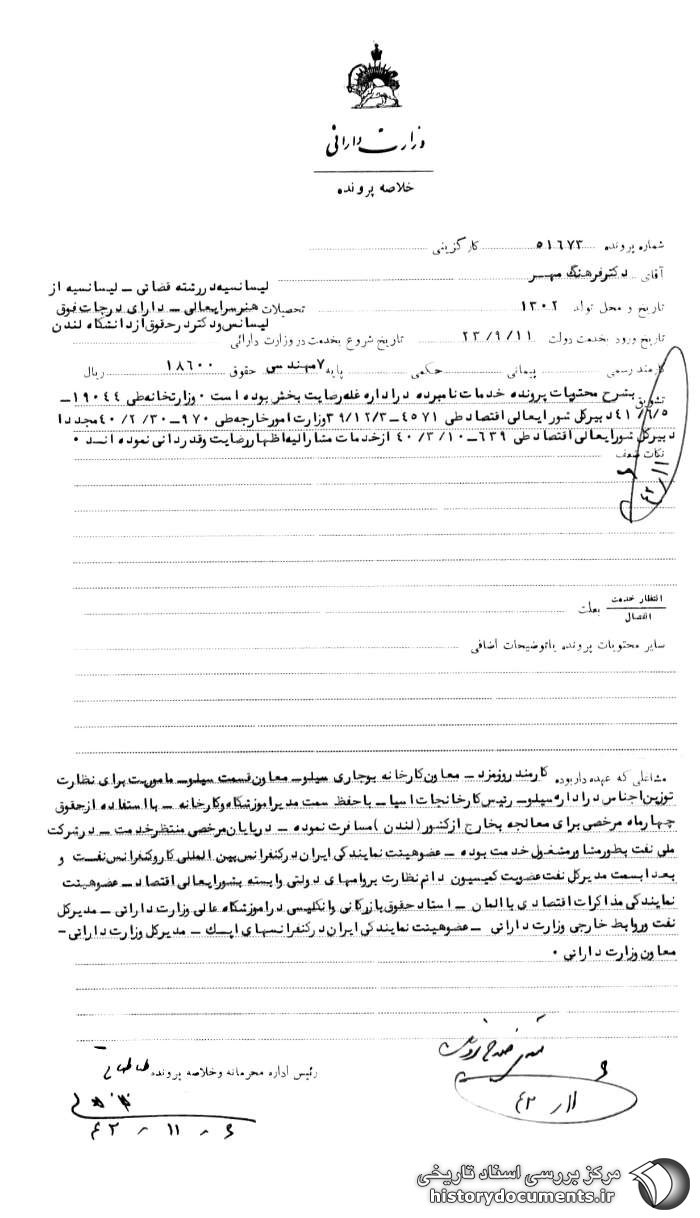 وزارت دارائی
خلاصه پرونده
شماره پرونده ۵۱۶۷۳ کارگزینی
آقای دکتر فرهنگ مهر
لیسانسیه در رشته قضائی – لیسانسیه از
تاریخ و محل تولد ۱۳۰۲ تحصیلات هنرسرایعالی – دارای درجات فوق
لیسانس و دکتر در حقوق از دانشگاه لندن
تاریخ ورود بخدمت دولت ۲۳/۹/۱۱ تاریخ شروع بخدمت در وزارت دارائی
کارمند رسمی پیمانی حکمی پایه ۷ مهندسی حقوق ۱۸۶۰۰ ریال
تشویق بشرح محتویات پرونده خدمات نامبرده در اداره غله رضایت بخش بوده است ۰ وزارتخانه طی ۱۹۰۴۴–
۴۱/۶/۵ دبیرکل شورایعالی اقتصاد طی ۴۵۷۱–۳۹/۱۲/۳ وزارت امور خارجه طی ۹۷۰–۴۰/۲/۳۰ مجددا
دبیرکل شورایعالی اقتصاد طی ۶۳۹–۴۰/۳/۱۰ از خدمات مشارالیه اظهار رضایت و قدردانی نموده اند ۰
نکات ضعف
۴۲/۱۱/۶
انتظار خدمت
انفصال
بعلت
سایر محتویات پرونده یا توضیحات اضافی
مشاغلی که عهده دار بوده کارمند روزمزد – معاون کارخانه بوجاری سیلو – معاون قسمت سیلو – ماموریت برای نظارت
توزین اجناس در اداره سیلو – رئیس کارخانجات آسیا – با حفظ سمت مدیر آموزشگاه و کارخانه – با استفاده از حقوق
چهارماه مرخصی برای معالجه بخارج از کشور (لندن) مسافرت نموده – در پایان مرخصی منتظر خدمت – در شرکت
ملی نفت بطور مشاور مشغول خدمت بوده – عضو هیئت نمایندگی ایران در کنفرانس بین المللی کار و کنفرانس نفت و
بعدا بسمت مدیرکل نفت عضویت کمیسیون دائم نظارت بر وامهای دولتی وابسته بشورایعالی اقتصاد – عضو هیئت
نمایندگی مذاکرات اقتصادی با آلمان – استاد حقوق بازرگانی و انگلیسی در آموزشگاه عالی وزارت دارائی – مدیرکل
نفت و روابط خارجی وزارت دارائی – عضو هیئت نمایندگی ایران در کنفرانسهای اپک – مدیرکل وزارت دارائی –
معاون وزارت دارائی ۰
رئیس اداره محرمانه و خلاصه پرونده
۴۲/۱۱/۶
۴۲ – ۱۱ – ۶
مرکز بررسی اسناد تاریخی
historydocuments.ir